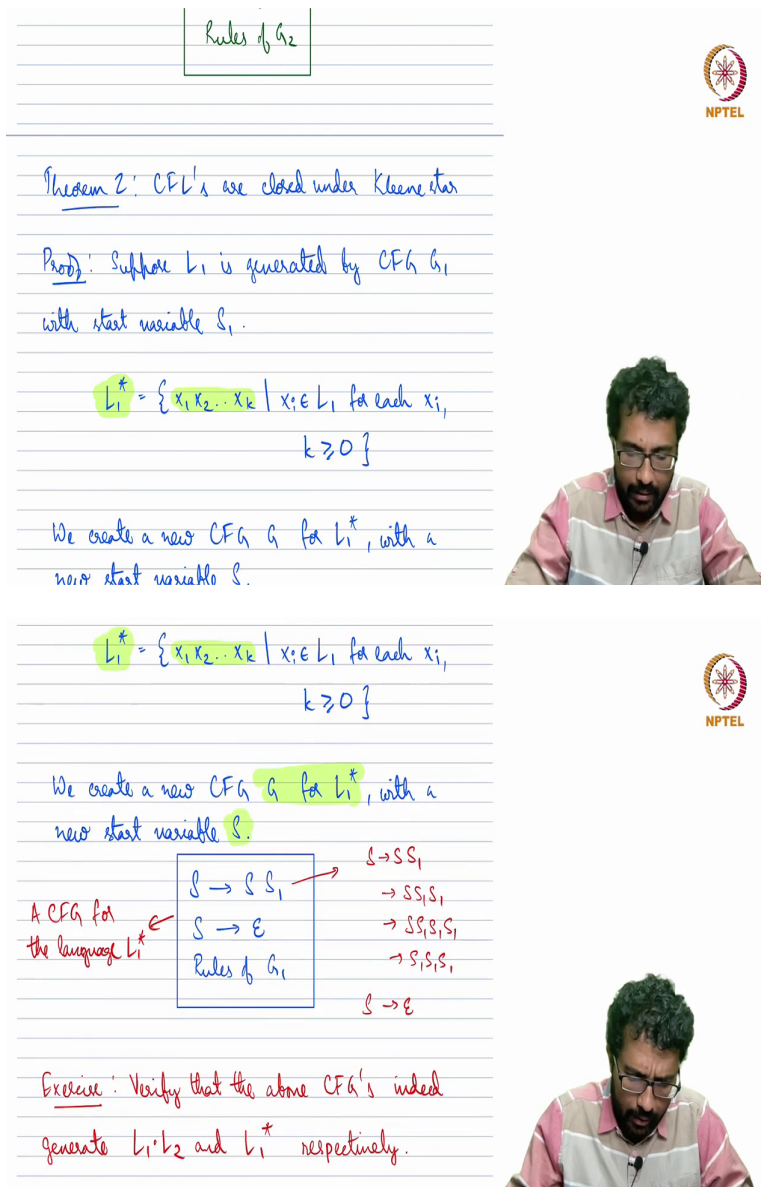 Rules of G₂
NPTEL
Theorem 2: CFL's are closed under Kleene star
Proof: Suppose L₁ is generated by CFG G₁
with start variable S₁.
L₁* = { x₁ x₂ .. xₖ | xᵢ ∈ L₁ for each xᵢ,
k ⩾ 0 }
We create a new CFG G for L₁*, with a
new start variable S.
L₁* = { x₁ x₂ .. xₖ | xᵢ ∈ L₁ for each xᵢ,
k ⩾ 0 }
NPTEL
We create a new CFG G for L₁*, with a
new start variable S.
S → S S₁
S → ε
Rules of G₁
A CFG for
the language L₁*
S → SS₁
→ SS₁S₁
→ SS₁S₁S₁
→ S₁S₁S₁
S → ε
Exercise: Verify that the above CFG's indeed
generate L₁·L₂ and L₁* respectively.